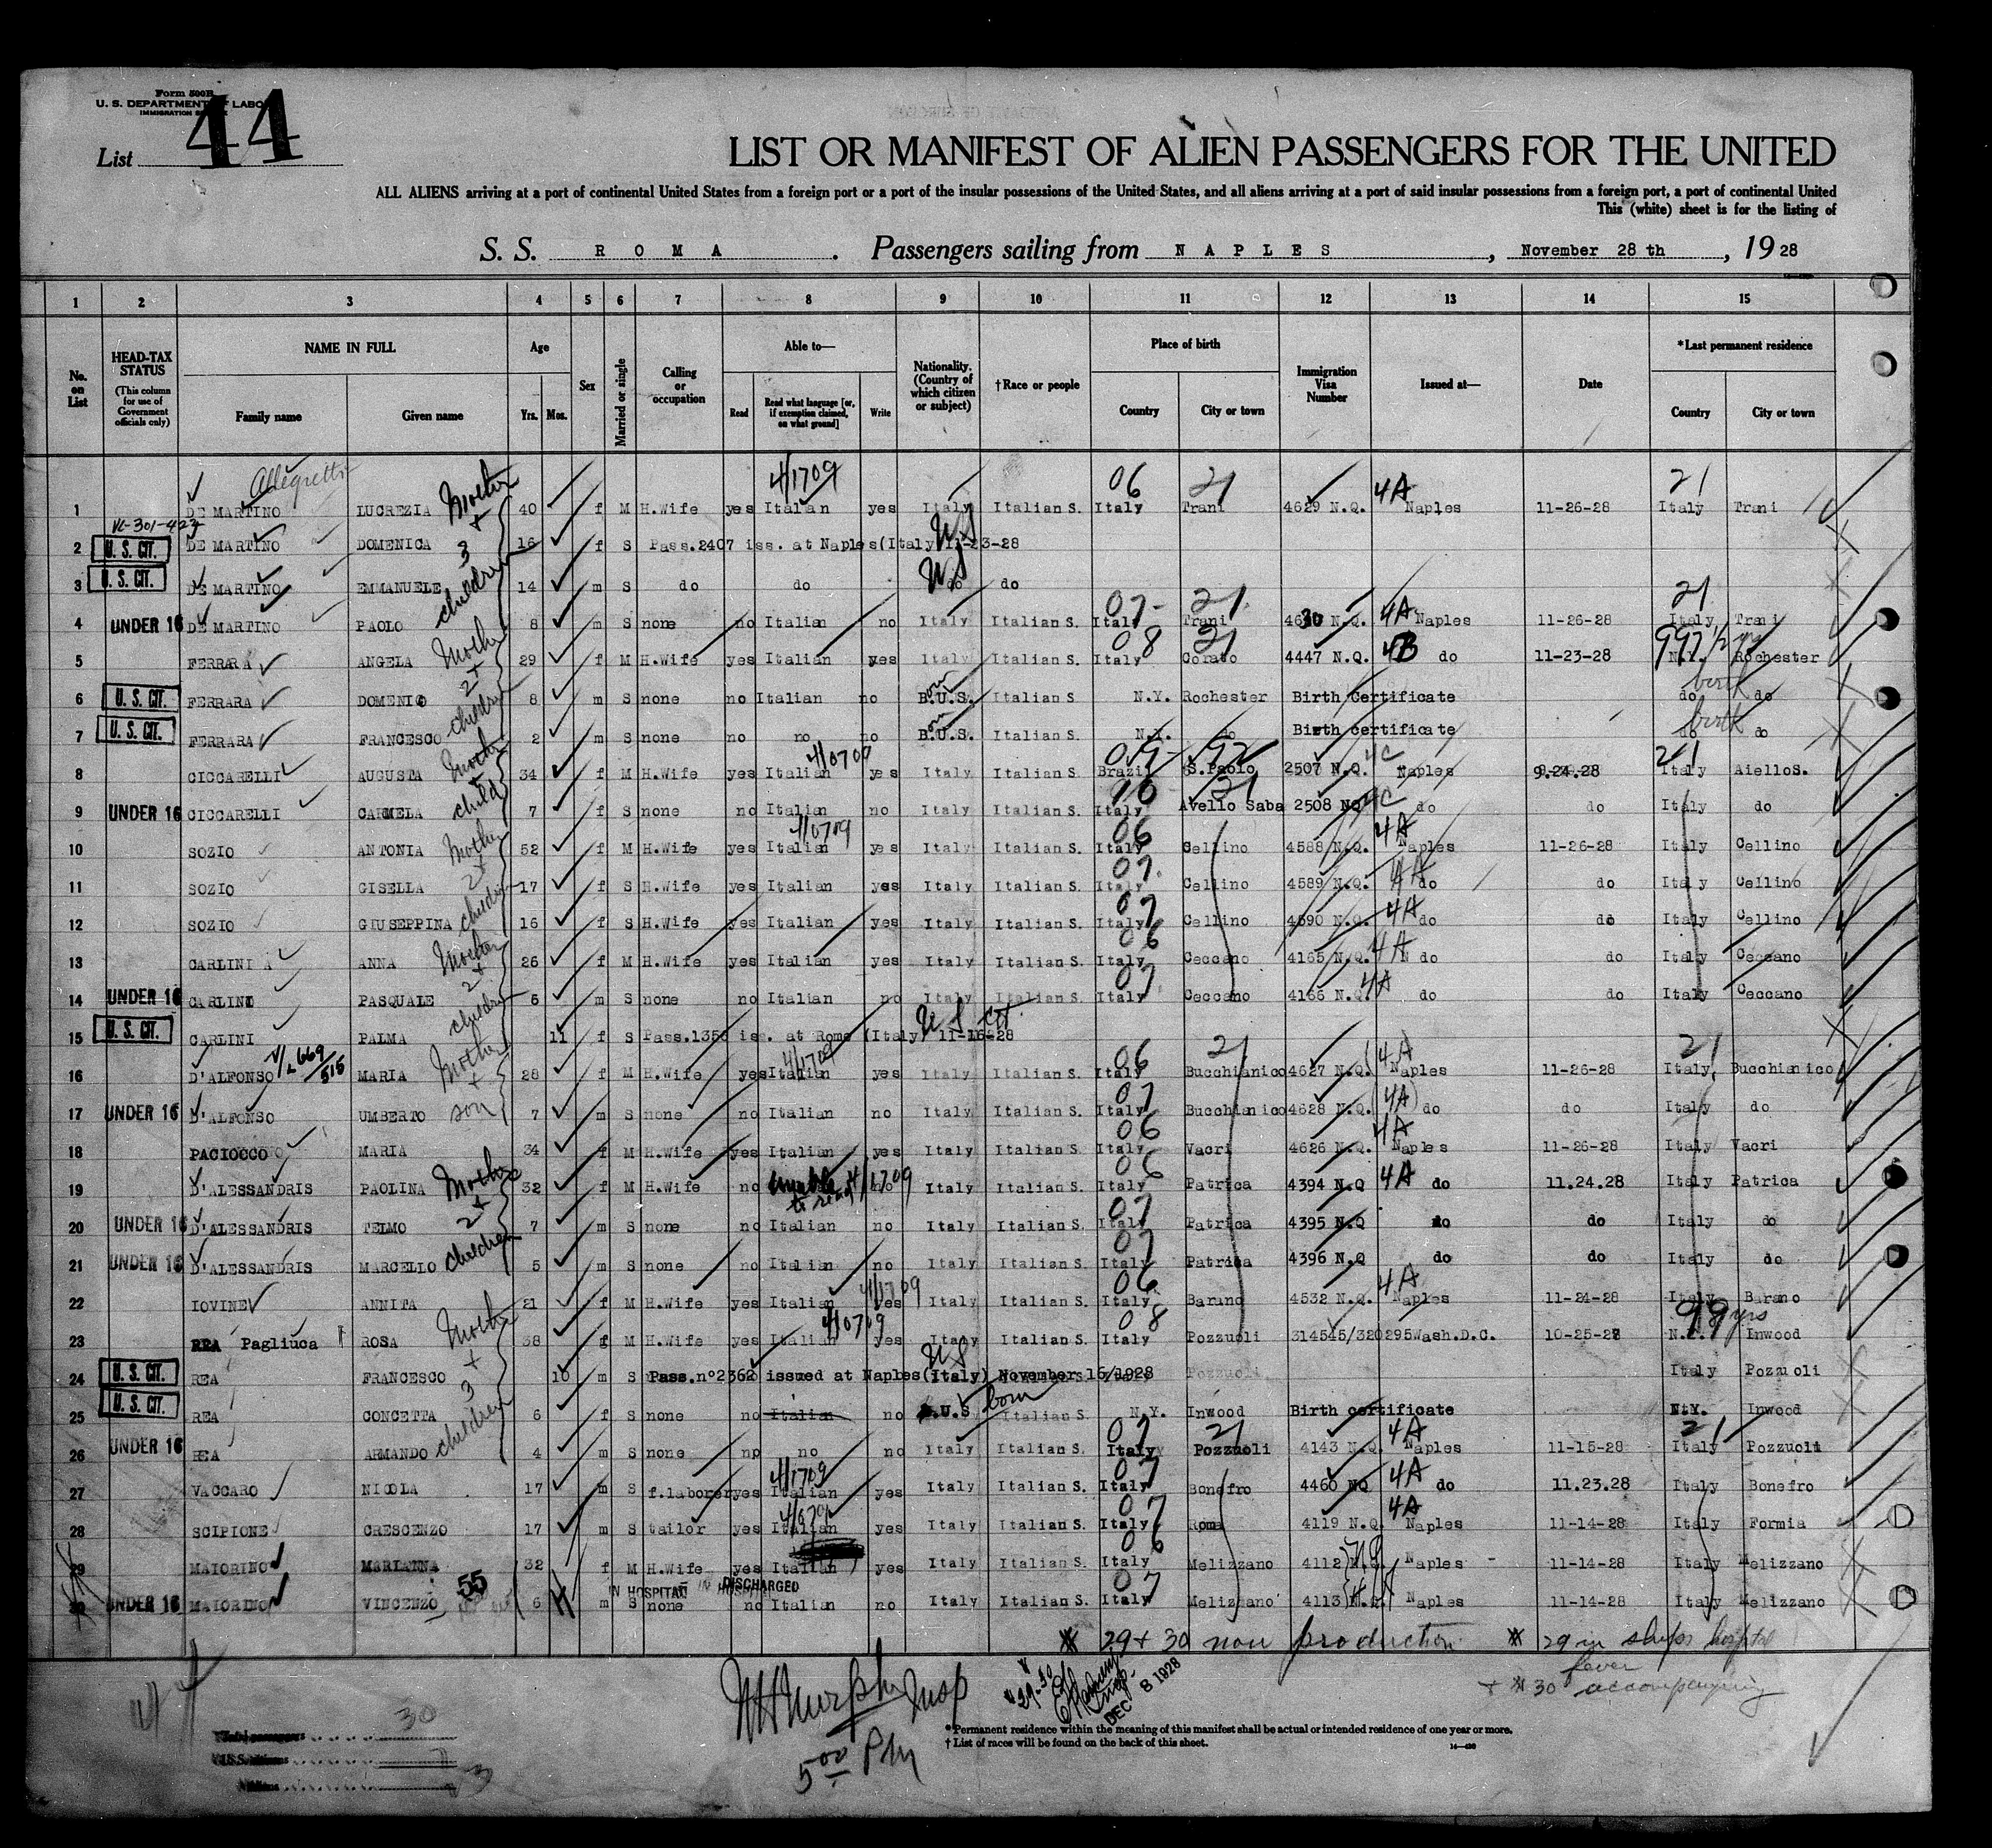 Form 500B
U. S. DEPARTMENT OF LABOR
IMMIGRATION
List 44
LIST OR MANIFEST OF ALIEN PASSENGERS FOR THE UNITED
ALL ALIENS arriving at a port of continental United States from a foreign port or a port of the insular possessions of the United States, and all aliens arriving at a port of said insular possessions from a foreign port, a port of continental United
This (white) sheet is for the listing of
S. S. ROMA. Passengers sailing from NAPLES, November 28 th, 19 28
1 2 3 4 5 6 7 8 9 10 11 12 13 14 15
No. on List
HEAD-TAX STATUS (This column for use of Government officials only)
NAME IN FULL Family name Given name
Age Yrs. Mos.
Sex
Married or single
Calling or occupation
Able to— Read Read what language [or, if exemption claimed, on what ground] Write
Nationality. (Country of which citizen or subject)
†Race or people
Place of birth Country City or town
Immigration Visa Number
Issued at—
Date
*Last permanent residence Country City or town
Allegretti 4/1709 06 21 4A 21
1 DE MARTINO LUCREZIA Mother + 40 f M H.Wife yes Italian yes Italy Italian S. Italy Trani 4629 N.Q. Naples 11-26-28 Italy Trani
2 U. S. CIT. DE MARTINO DOMENICA 3 16 f S Pass.2407 iss. at Naples(Italy 11-23-28 US
3 U. S. CIT. DE MARTINO EMMANUELE children 14 m S do do do do US
4 UNDER 16 DE MARTINO PAOLO 8 m S none no Italian no Italy Italian S. 07 21 Italy Trani 4630 N.Q. 4A Naples 11-26-28 21 Italy Trani
5 FERRARA ANGELA Mother 29 f M H.Wife yes Italian yes Italy Italian S. 08 21 Italy Corato 4447 N.Q. 4B do 11-23-28 N.Y. Rochester
6 U. S. CIT. FERRARA DOMENICO 2+ 8 m S none no Italian no B.U.S. born Italian S N.Y. Rochester Birth Certificate do birth do
7 U. S. CIT. FERRARA FRANCESCO children 2 m S none no no no B.U.S. born Italian S. N.Y. do Birth certificate do birth do
8 CICCARELLI AUGUSTA Mother + 34 f M H.Wife yes Italian yes Italy Italian S. Brazil S.Paolo 2507 N.Q. 4C Naples 9.24.28 21 Italy Aiello S.
9 UNDER 16 CICCARELLI CARMELA child 7 f S none no Italian no Italy Italian S. Italy Avello Saba 2508 NQ 4C do do Italy do
10 SOZIO ANTONIA Mother 52 f M H.Wife yes Italian yes Italy Italian S. 06 Italy Cellino 4588 N.Q. 4A Naples 11-26-28 Italy Cellino
11 SOZIO GISELLA 2+ 17 f S H.Wife yes Italian yes Italy Italian S. 07 Italy Cellino 4589 N.Q. 4A do do Italy Cellino
12 SOZIO GIUSEPPINA children 16 f S H.Wife yes Italian yes Italy Italian S. 07 Italy Cellino 4590 N.Q. 4A do do Italy Cellino
13 CARLINI A ANNA Mother 26 f M H.Wife yes Italian yes Italy Italian S. 06 Italy Ceccano 4165 N.Q. 4A do do Italy Ceccano
14 UNDER 16 CARLINI PASQUALE 2+ m S none no Italian no Italy Italian S. 07 Italy Ceccano 4166 N.Q. 4A do do Italy Ceccano
15 U. S. CIT. CARLINI PALMA children 11 f S Pass.1356 iss. at Rome (Italy) 11-16-28 U S cit.
16 D'ALFONSO MARIA Mother + 28 f M H.Wife yes Italian yes Italy Italian S. 06 21 Italy Bucchianico 4627 N.Q. 4A Naples 11-26-28 21 Italy Bucchianico
17 UNDER 16 D'ALFONSO UMBERTO son 7 m S none no Italian no Italy Italian S. 07 Italy Bucchianico 4628 N.Q. 4A do do Italy do
18 PACIOCCO MARIA 34 f M H.Wife yes Italian yes Italy Italian S. 06 Italy Vacri 4626 N.Q. 4A Naples 11-26-28 Italy Vacri
19 D'ALESSANDRIS PAOLINA Mother 32 f M H.Wife no unable to read no Italy Italian S. 06 Italy Patrica 4394 N.Q 4A do 11.24.28 Italy Patrica
20 UNDER 16 D'ALESSANDRIS TELMO 2+ 7 m S none no Italian no Italy Italian S. 07 Italy Patrica 4395 N.Q do do Italy do
21 UNDER 16 D'ALESSANDRIS MARCELLO children 5 m S none no Italian no Italy Italian S. 07 Italy Patrica 4396 N.Q do do Italy do
22 IOVINE ANNITA 21 f M H.Wife yes Italian yes Italy Italian S. 06 Italy Barano 4532 N.Q. 4A Naples 11-24-28 Italy Barano
23 REA Pagliuca ROSA Mother + 38 f M H.Wife yes Italian yes Italy Italian S. 08 Italy Pozzuoli 314545/320295 Wash.D.C. 10-25-28 N.Y. Inwood
24 U. S. CIT. REA FRANCESCO 3 10 m S Pass.n°2362 issued at Naples(Italy) November 16/1928 US Italy Pozzuoli
25 U. S. CIT. REA CONCETTA children 6 f S none no Italian no B.U.S born Italian S. N.Y. Inwood Birth certificate N.Y. Inwood
26 UNDER 16 REA ARMANDO 4 m S none no no no Italy Italian S. 07 21 Italy Pozzuoli 4143 N.Q. 4A Naples 11-15-28 21 Italy Pozzuoli
27 VACCARO NICOLA 17 m S f.laborer yes Italian yes Italy Italian S. 07 Italy Bonefro 4460 NQ 4A do 11.23.28 Italy Bonefro
28 SCIPIONE CRESCENZO 17 m S tailor yes Italian yes Italy Italian S. 07 Italy Roma 4119 N.Q. 4A Naples 11-14-28 Italy Formia
29 MAIORINO MARIANNA 32 f M H.Wife yes Italian yes Italy Italian S. 06 Italy Melizzano 4112 N.Q. Naples - 11-14-28 Italy Melizzano
IN HOSPITAL DISCHARGED
30 UNDER 16 MAIORINO VINCENZO 55 6 m S none no Italian no Italy Italian S. 07 Italy Melizzano 4113 N.Q. Naples 11-14-28 Italy Melizzano
29 + 30 non production 29 in ships hospital
fever
+ 30 accompanying
Insp
DEC 8 1928
5 00 PM
Total passengers 30
U.S. citizens
Aliens
*Permanent residence within the meaning of this manifest shall be actual or intended residence of one year or more.
† List of races will be found on the back of this sheet.